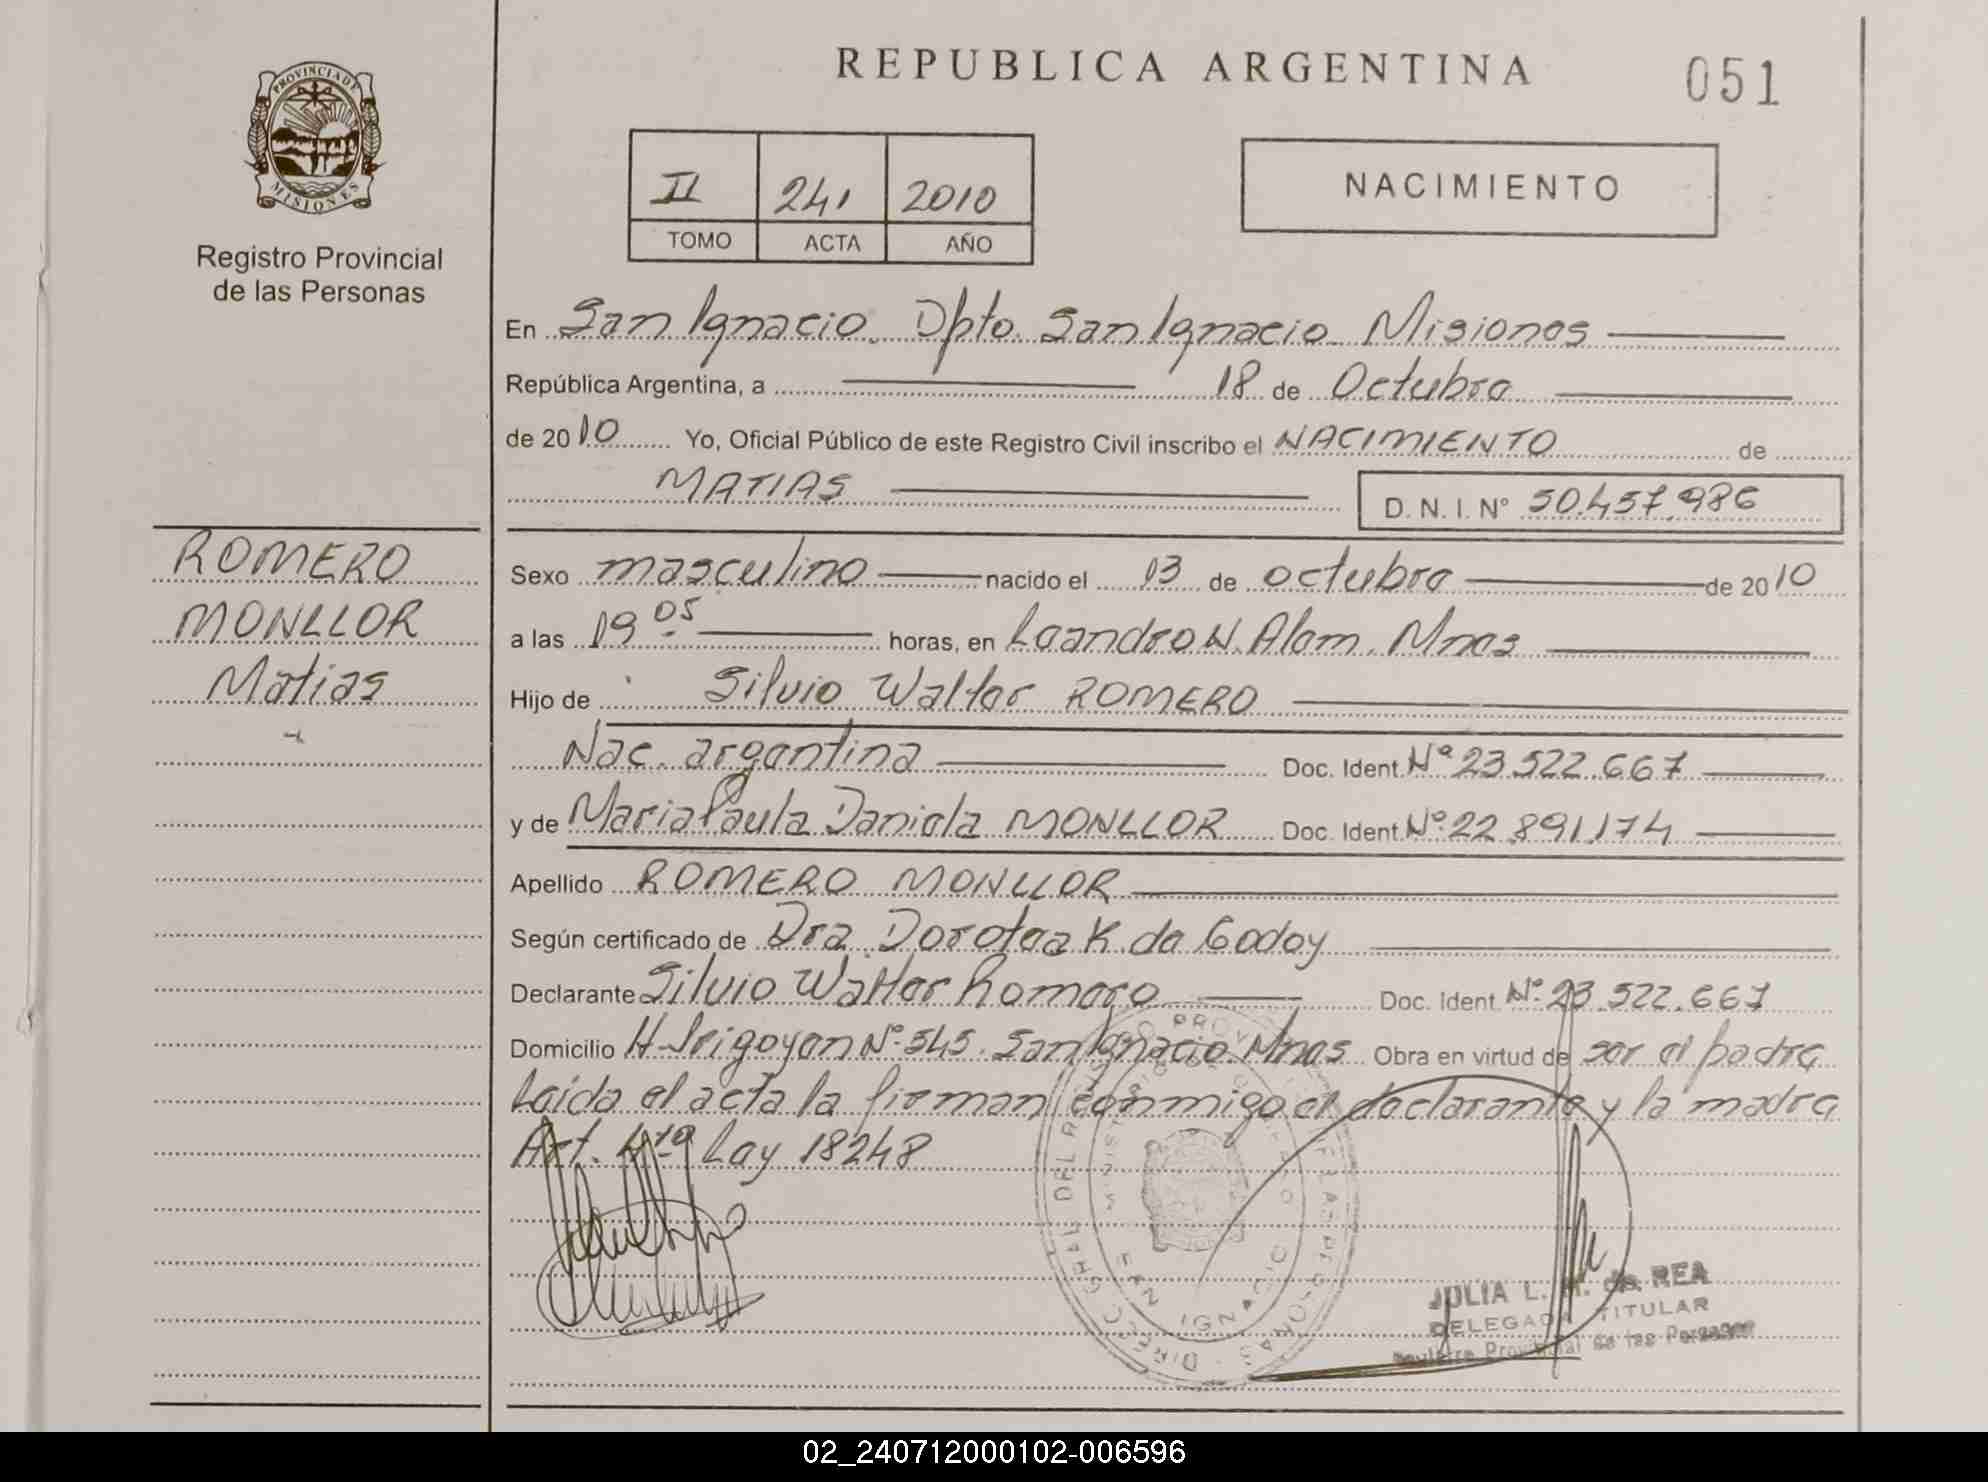 REPUBLICA ARGENTINA
051
PROVINCIA DE MISIONES
Registro Provincial
de las Personas
II 241 2010
TOMO ACTA AÑO
NACIMIENTO
En San Ignacio. Dpto. San Ignacio. Misiones
República Argentina, a 18 de Octubre
de 2010 Yo, Oficial Público de este Registro Civil inscribo el NACIMIENTO de
MATIAS
D. N. I. Nº 50.457.986
ROMERO
MONLLOR
Matias
Sexo masculino nacido el 13 de octubre de 2010
a las 19 05 horas, en Leandro N. Alem. Mnes
Hijo de Silvio Walter ROMERO
Nac. argentina Doc. Ident. Nº 23.522.667
y de Maria Paula Daniela MONLLOR Doc. Ident. Nº 22.891.174
Apellido ROMERO MONLLOR
Según certificado de Dra. Dorotea K. de Godoy
Declarante Silvio Walter Romero Doc. Ident. Nº 23.522.667
Domicilio H. Irigoyen Nº 545. San Ignacio Mnes Obra en virtud de ser el padre
Leida el acta la firman conmigo el declarante y la madre
Art. 4to Ley 18248
SAN IGNACIO
JULIA L. M. de REA
DELEGADA TITULAR
Registro Provincial de las Personas
02_240712000102-006596